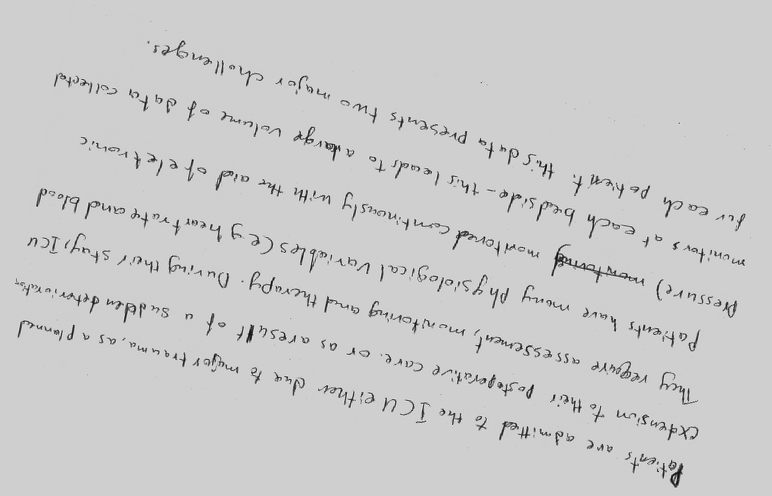 Patients are admitted to the ICU either due to major trauma, as a planned
extension to their postoperative care. or as a result of a sudden deterioration.
They require assessement, monitoring and therapy. During their stay, ICU
Patients have many Physiological Variables (e.g heart rate and blood
Pressure) monitored continuously with the aid of eletronic
monitors at each bedside - this leads to a large volume of data collected
for each patient. this data presents two major challenges.